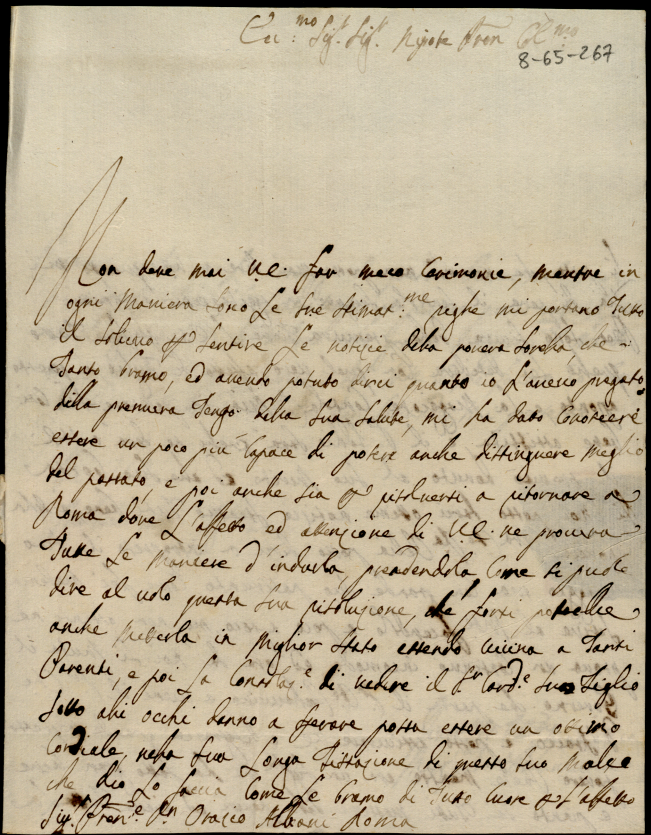 Ecc:mo Sig.r Sig.r Nipote Pron Col:mo
8-65-267
Non deve mai V.E. far meco Cerimonie, mentre in
ogni Maniera sono Le Sue stimat:me righe mi portano Tutto
il solievo p sentire Le notizie della povera sorella, che
Tanto bramo, ed avendo potuto dirci quanto io L'avevo pregato
della premura Tengo della sua salute, mi ha dato Conoscere
essere un poco più Capace di potere anche distinguere meglio
del passato, e poi anche sia p risolversi a ritornare a
Roma dove L'affetto, ed attenzione di V.E. ne procura
Tutte Le maniere d'indurla, prendendola Come si puole
dire al volo questa sua risoluzione, che forsi potrebbe
anche Meterla in Miglior stato essendo vicina a Tanti
Parenti, e poi La Consolaz.e di vedere il Sr Card.e Suo Figlio
sotto alli occhi danno a sperare possa essere un ottimo
Cordiale, nella sua Longa situazione di questo suo Male
che Dio Lo faccia Come Le bramo di Tutto Cuore p L'affetto
Sig.r Pron.e Dn Orazio Albani Roma